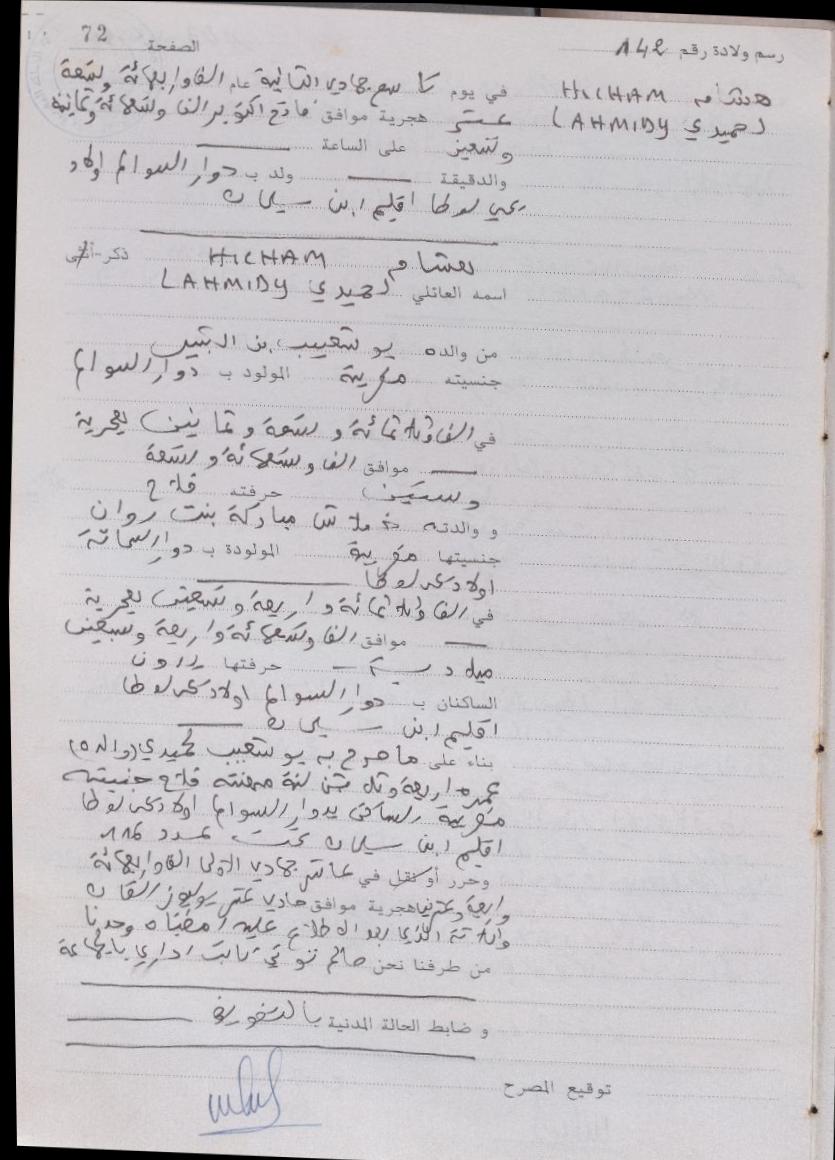 رسم ولادة رقم 142 الصفحة 72
هشام HICHAM في يوم تاسع جمادى الثانية عام ألف وأربعمائة وتسعة
لحميدي LAHMIDY عشر هجرية موافق فاتح أكتوبر ألف وتسعمائة وثمانية
وتسعين على الساعة
والدقيقة ولد ب دوار السوالم أولاد
يحيى لوطا اقليم ابن سليمان
هشام HICHAM ذكر-أنثى
اسمه العائلي لحميدي LAHMIDY
من والده بوشعيب بن
جنسيته مغربية المولود ب دوار السوالم
في ألف وثلاثمائة وتسعة وثمانين هجرية
موافق ألف وتسعمائة وتسعة
وستين حرفته فلاح
و والدته مباركة بنت
جنسيتها مغربية المولودة ب دوار
اولاد يحيى لوطا
في ألف وثلاثمائة وأربعة وتسعين هجرية
موافق ألف وتسعمائة وأربعة وسبعين
ميلادية حرفتها بدون
الساكنان ب دوار السوالم اولاد يحيى لوطا
اقليم ابن سليمان
بناء على ما صرح به بوشعيب لحميدي (والده)
عمره أربعة وثلاثين سنة مهنته فلاح جنسيته
مغربية الساكن بدوار السوالم اولاد يحيى لوطا
اقليم ابن سليمان تحت عدد
وحرر أو نقل في عاشر جمادى الأولى ألف وأربعمائة
وأربعة وعشرين هجرية موافق حادي عشر يوليوز ألفان
وثلاثة الذي بعد الاطلاع عليه امضاه وحدنا
من طرفنا نحن نائب إداري بالجماعة
و ضابط الحالة المدنية
توقيع المصرح